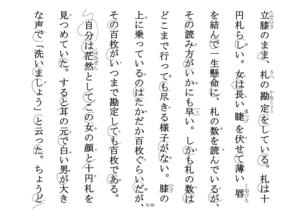 立膝のまま、札の勘定をしている。札は十
円札らしい。女は長い睫を伏せて薄い唇
を結んで一生懸命に、札の数を読んでいるが、
その読み方がいかにも早い。しかも札の数は
どこまで行っても尽きる様子がない。膝の
上に乗っているのはたかだか百枚ぐらいだが、
その百枚がいつまで勘定しても百枚である。
自分は茫然としてこの女の顔と十円札を
見つめていた。すると耳の元で白い男が大き
な声で「洗いましょう」と云った。ちょうど